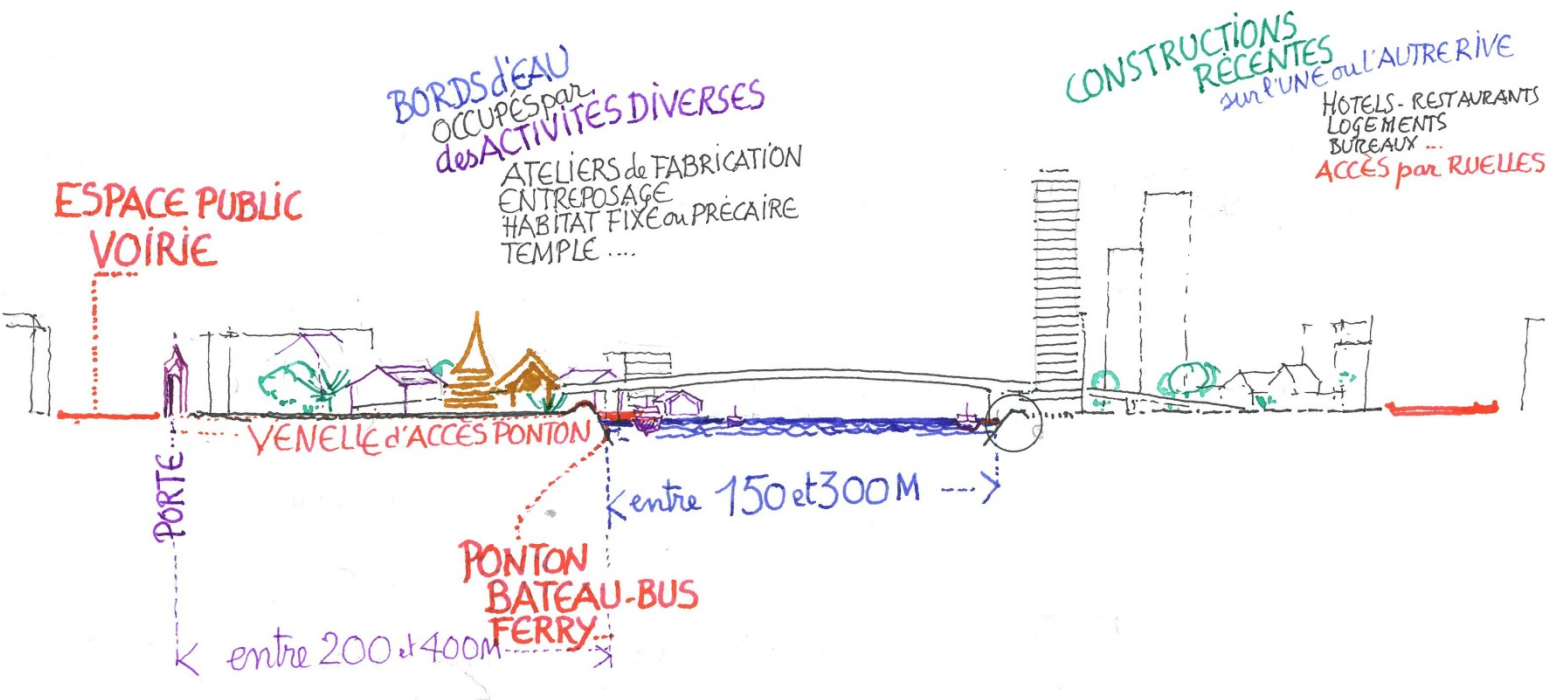 BORDS d'EAU
OCCUPÉS par
des ACTIVITÉS DIVERSES
ATELIERS de FABRICATION
ENTREPOSAGE
HABITAT FIXE ou PRÉCAIRE
TEMPLE ....
CONSTRUCTIONS
RÉCENTES
sur l'UNE ou L'AUTRE RIVE
HOTELS - RESTAURANTS
LOGEMENTS
BUREAUX ...
ACCÈS par RUELLES
ESPACE PUBLIC
VOIRIE
VENELLE d'ACCÈS PONTON
PORTE
entre 150 et 300 M
PONTON
BATEAU-BUS
FERRY...
entre 200 et 400M